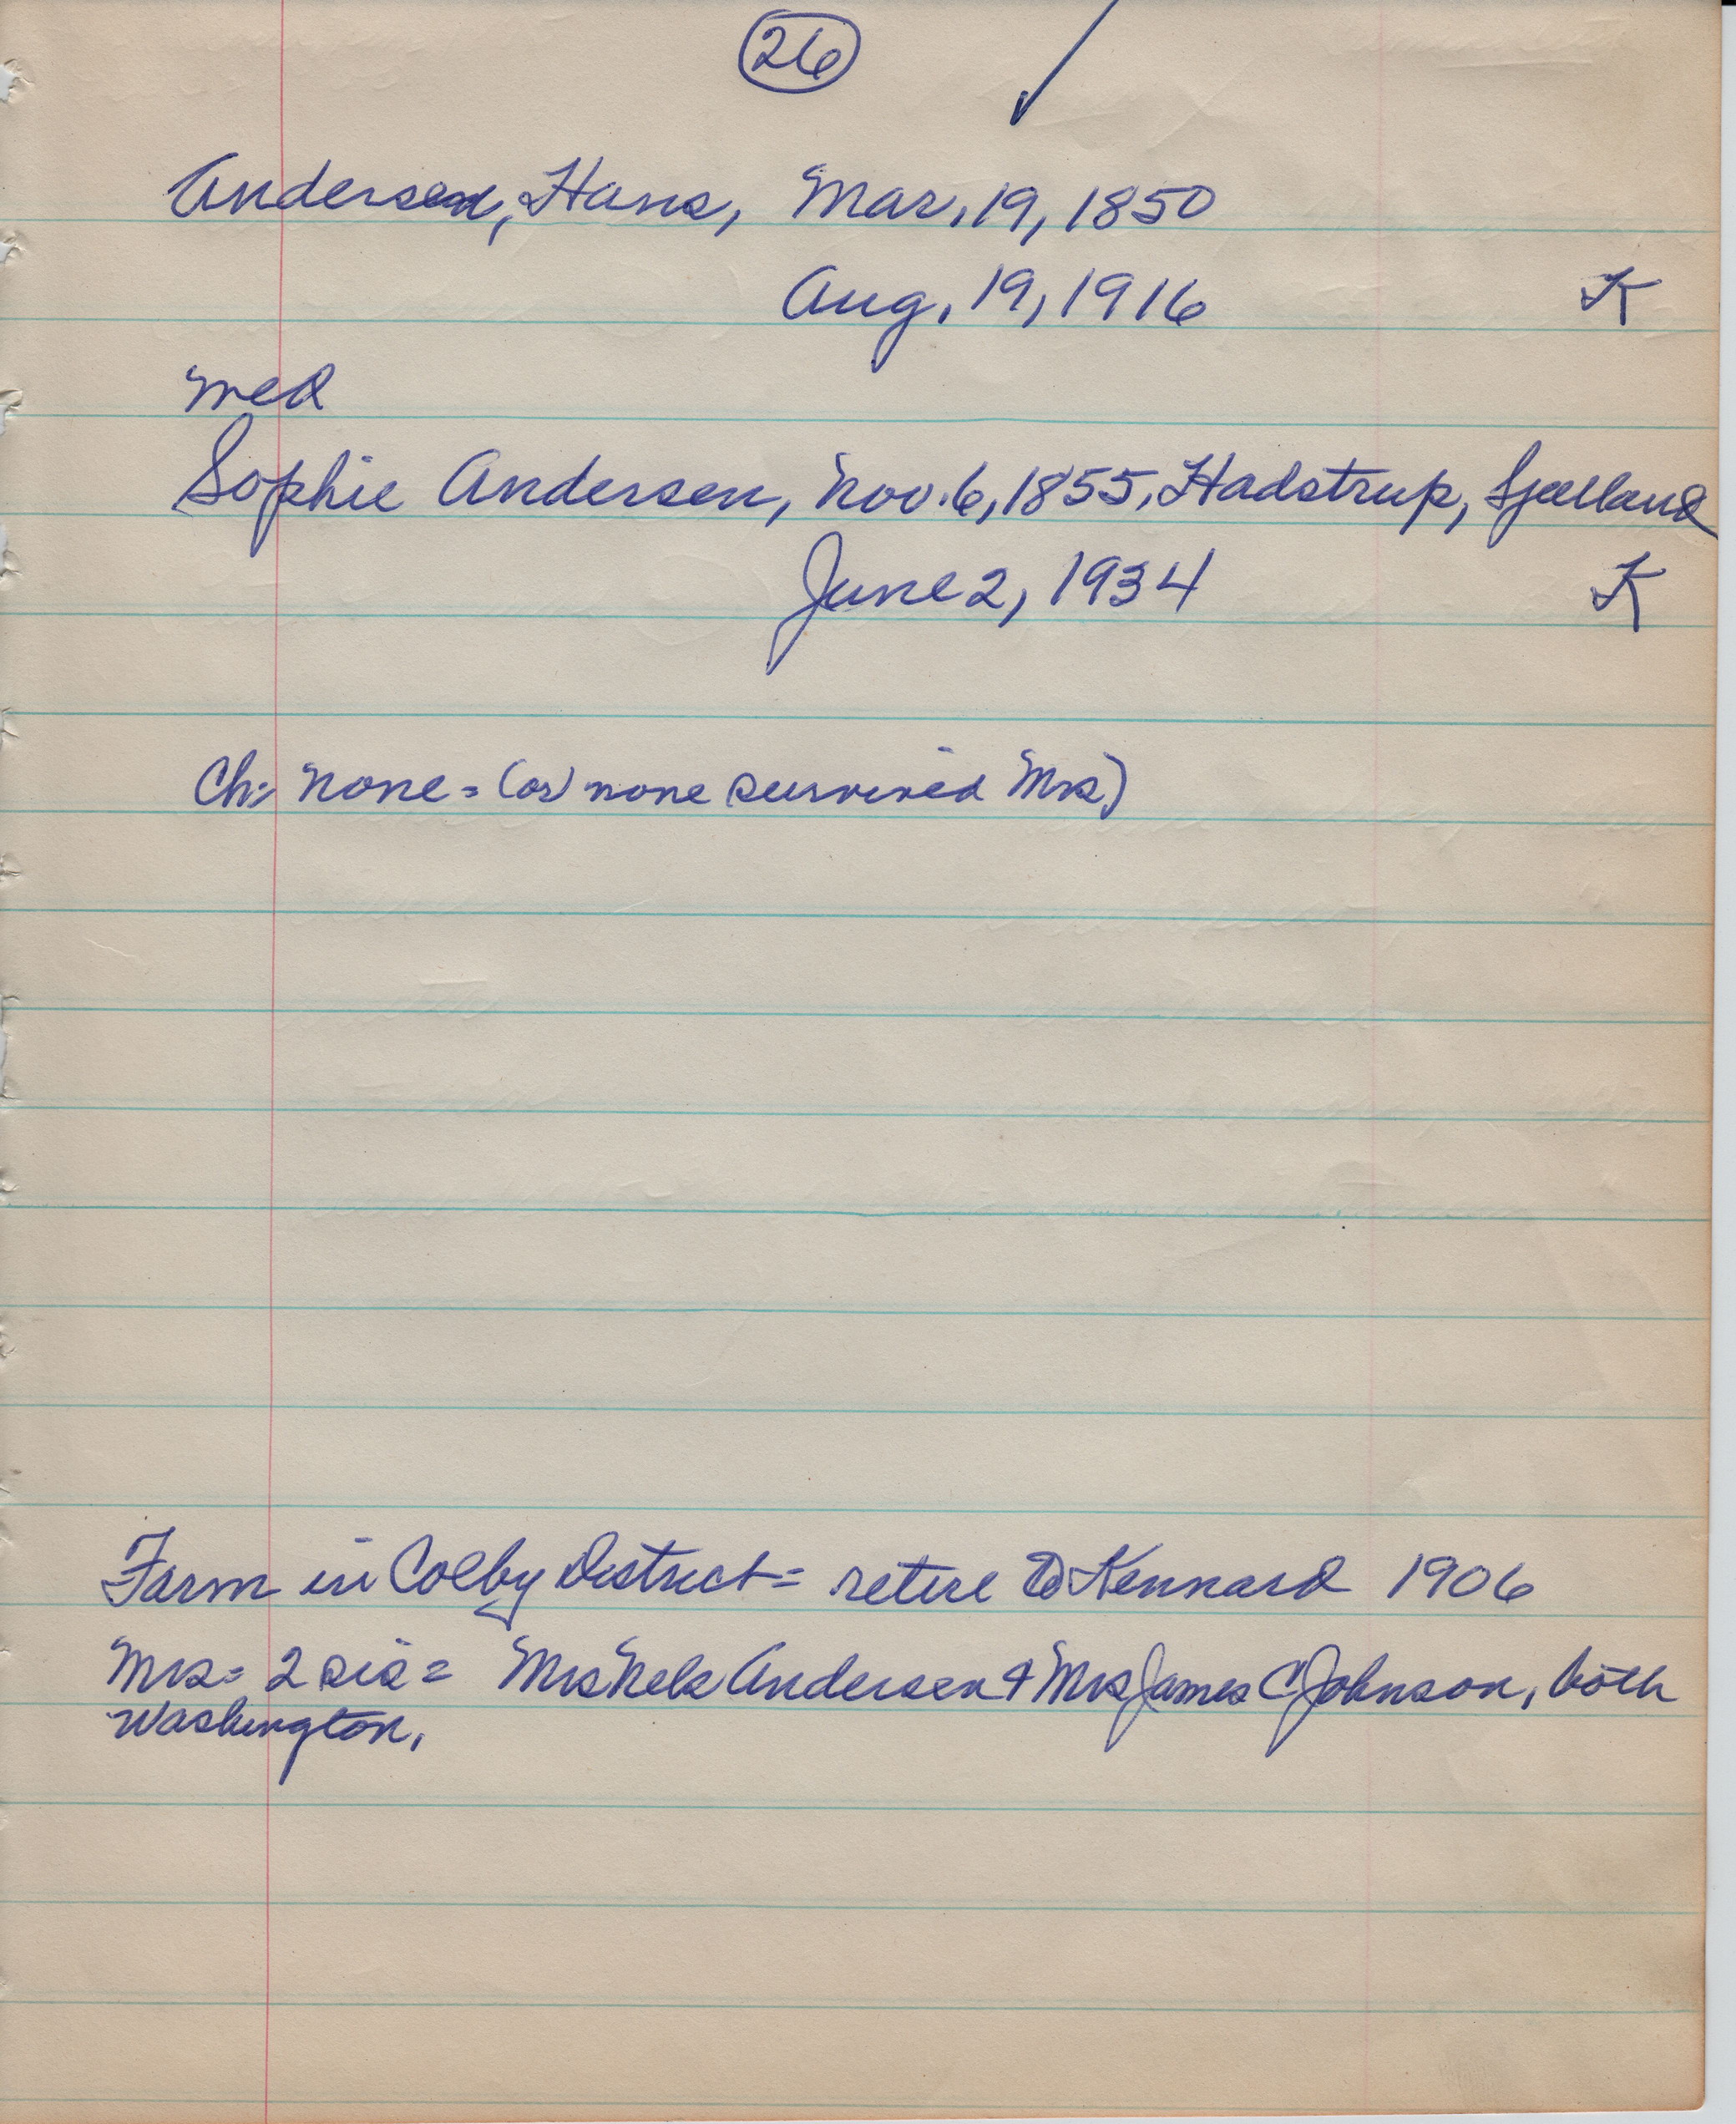 26
Andersen, Hans, Mar. 19, 1850
Aug. 19, 1916 K
med
Sophie Andersen, Nov. 6, 1855, Hadstrup, Sjælland
June 2, 1934 K
Ch: none = (or) none survived Mrs)
Farm in Colby District = retire to Kennard 1906
Mrs = 2 sis = Mrs Nels Andersen & Mrs James C Johnson, both
Washington,